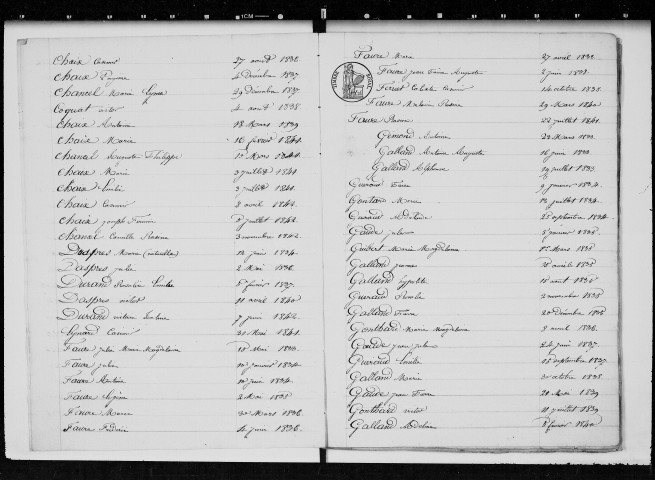 Chaix Casimir 27 août 1836
Chaix 4 Décembre 1837
Chancel Marie 29 Décembre 1837
Coquat victor 4 août 1838
Chaix Antoine 18 Mars 1839
Chaix Marie 16 février 1841
Chancel Auguste Philippe 1er Mars 1841
Chaix Marie 3 juillet 1841
Chaix Emilie 3 juillet 1841
Chaix Casimir 8 avril 1842
Chaix joseph juillet 1842
Chancel Camille 3 novembre 1842
Daspres Marie 12 juin 1834
Daspres jules 2 Mai 1836
Durand Emilie 8 février 1837
Daspres victor 11 avril 1840
Durand 7 juin 1842
Eynard Casimir 31 Mai 1841
Faure julie Marie Magdeleine Mai 1833
Faure jules janvier 1834
Faure Antoine 10 juin 1834
Faure 2 Mai 1835
Faure Marie 30 Mars 1836
Faure Frédéric 4 juin 1836
Faure Marie 27 avril 1838
Faure jean Auguste 2 juin 1838
Casimir 14 octobre 1838
Faure 29 Mars 1840
Faure 22 juillet 1841
Gémond Antoine 23 Mars 1833
Galland Antoine Auguste 16 juin 1833
Galland Alphonse 29 juillet 1833
Guiraud 9 janvier 1834
Gontard Marie 12 juillet 1834
Guiraud Adélaïde 25 septembre 1834
Gaude jules 5 janvier 1835
Guibert Marie Magdeleine 1er Mars 1835
Galland avril 1835
Galland hypolite 18 août 1835
Guiraud 2 novembre 1835
Galland 20 Décembre 1835
Gontard Marie Magdeleine 8 avril 1836
Gaude jean jules 24 juin 1837
Guiraud Emilie 15 septembre 1837
Galland Marie 30 octobre 1838
Gaude jean 20 Mai 1839
Gonthard victor 11 juillet 1839
Galland février 1840